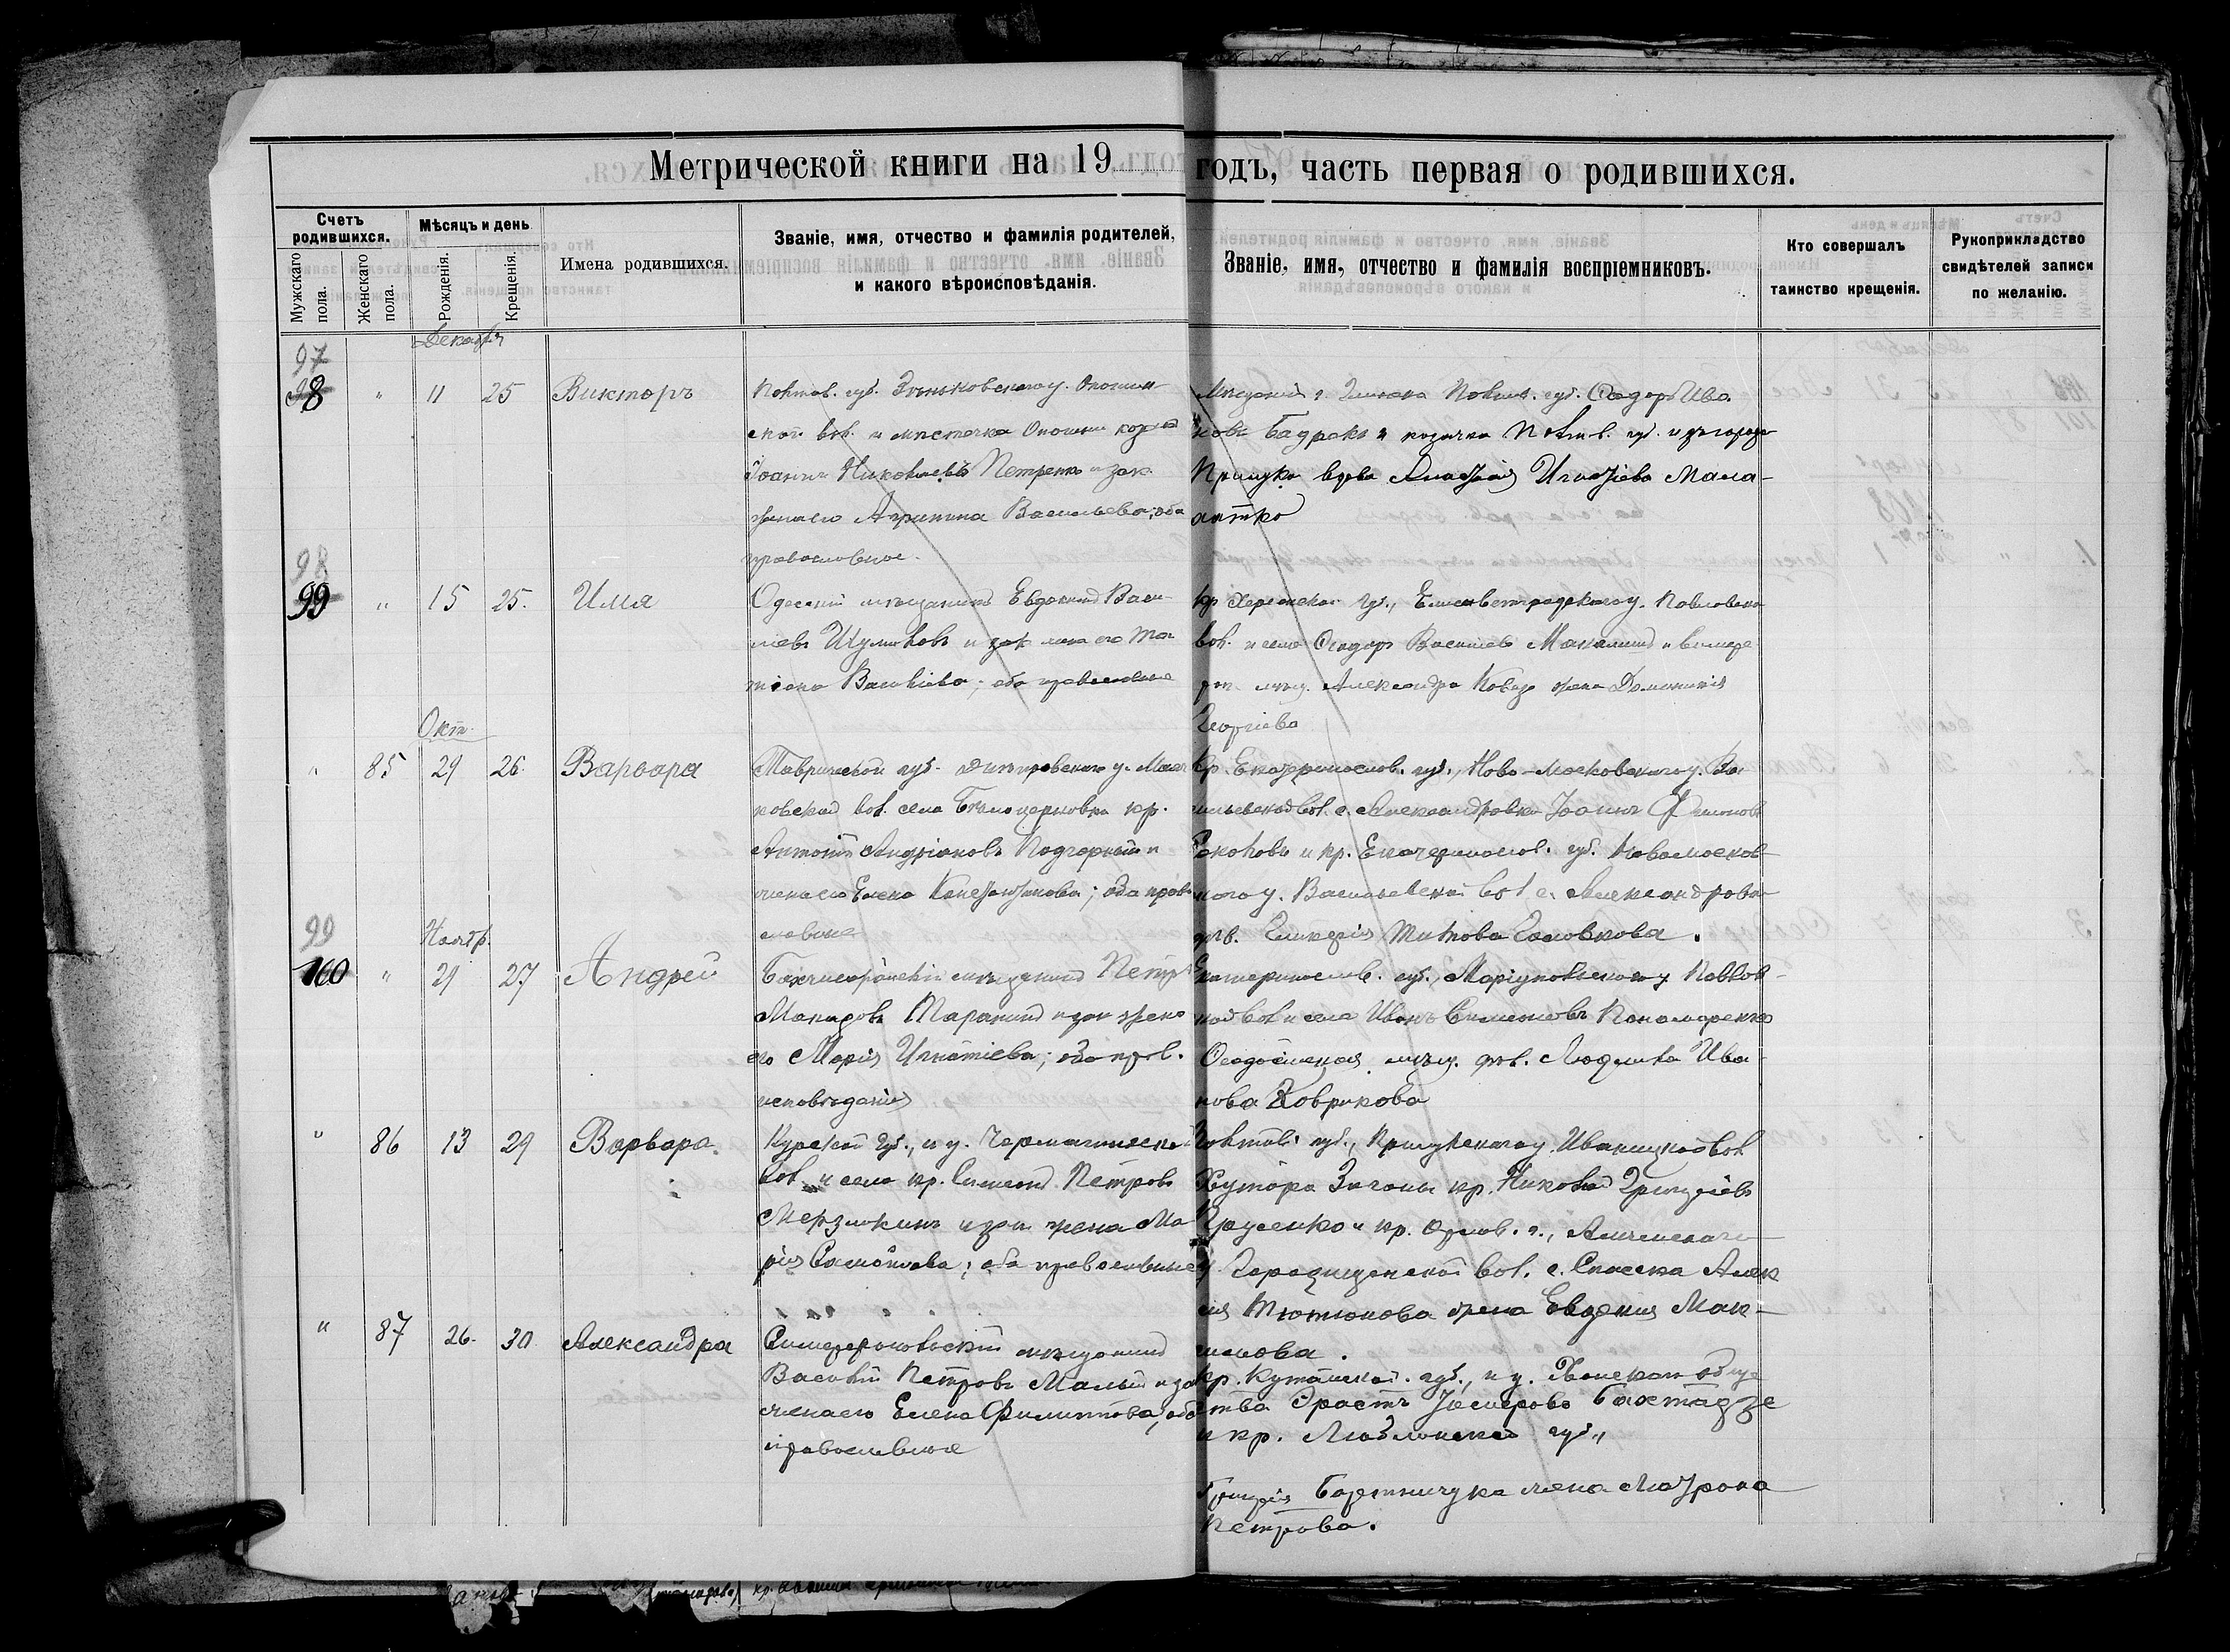 Метрической книги на 19 годъ, часть первая о родившихся.
Счетъ родившихся.
Мужскаго пола.
Женскаго пола.
Мѣсяцъ и день
Рожденія.
Крещенія.
Имена родившихся.
Званіе, имя, отчество и фамилія родителей,
и какого вѣроисповѣданія.
Званіе, имя, отчество и фамилія воспріемниковъ.
Кто совершалъ
таинство крещенія.
Рукоприкладство
свидѣтелей записи
по желанію.
Декабря
97
98 " 11 25 Викторъ
Полтав. губ. Зеньковскаго у. Опошнян-
ской вол. и мѣстечка Опошни козакъ
Іоаннъ Николаевъ Петренко и зак.
жена его Агрипина Васильева; оба
православные.
Полтав. губ. Сидоръ Ива-
новъ Бадрако и козачка Полтав. губ. и у. города
Прилукъ вдова Анастасія Игнатіева Мала-
98
99 " 15 25. Илія
Одесскій мѣщанинъ Евдокимъ Васи-
льевъ Шумиловъ и зак. жена его Та-
тіана Васильева; оба православные
кр. Херсонской губ., Елисаветградскаго у. Павловской
вол. и села Сидоръ Васильевъ и
мѣщ. Александра жена Доминикія
Георгіева
Окт.
" 85 29 26. Варвара
Таврической губ. Днѣпровскаго у. Мая-
ковской вол. села Бѣлоцерковки кр.
Антоній Андріановъ Подгорный и
жена его Елена Константинова; оба право-
славные
Кр. Екатеринослав. губ., Ново-московскаго у. Ва-
сильевской вол. с. Александровки Іоаннъ Филимоновъ
и кр. Екатеринослав. губ. Новомосков-
скаго у. Васильевской вол. с. Александровки
дѣв. Гликерія Титова Головкова.
99
Ноябр.
100 " 21 27 Андрей
Бахчисарайскій мѣщанинъ Петръ
Макаровъ Таранинъ и зак. жена
его Марія Игнатіева; оба прав.
исповѣданія
Екатеринослав. губ., Маріупольскаго у. Павлов-
ской вол. и села Иванъ Симеоновъ Пономаренко
Ѳеодосійская мѣщ. дѣв. Людмила Ива-
нова Коврикова
" 86 13 29 Варвара.
Курской губ., и у.
вол. и села кр. Симеонъ Петровъ
Мерзликинъ и зак. жена Ма-
рія Самойлова; оба православные
Полтав. губ., Прилукскаго у. Иваницкой вол.
Хутора кр. Николай Григоріевъ
и кр. Орлов. г.,
у. Городищенской вол. с. Спасска Алек-
сія Тютюнова жена Евдокія Мак-
симова.
" 87 26. 30 Александра
Симферопольскій мѣщанинъ
Василій Петровъ Малый и зак.
жена его Елена Филиппова, оба
православные
кр. Кутаисской. губ., и у. Хонскаго обще-
ства Эрастъ Бахтадзе
и кр. Люблинской губ.,
Григорія Бортничука жена Матрона
Петрова.